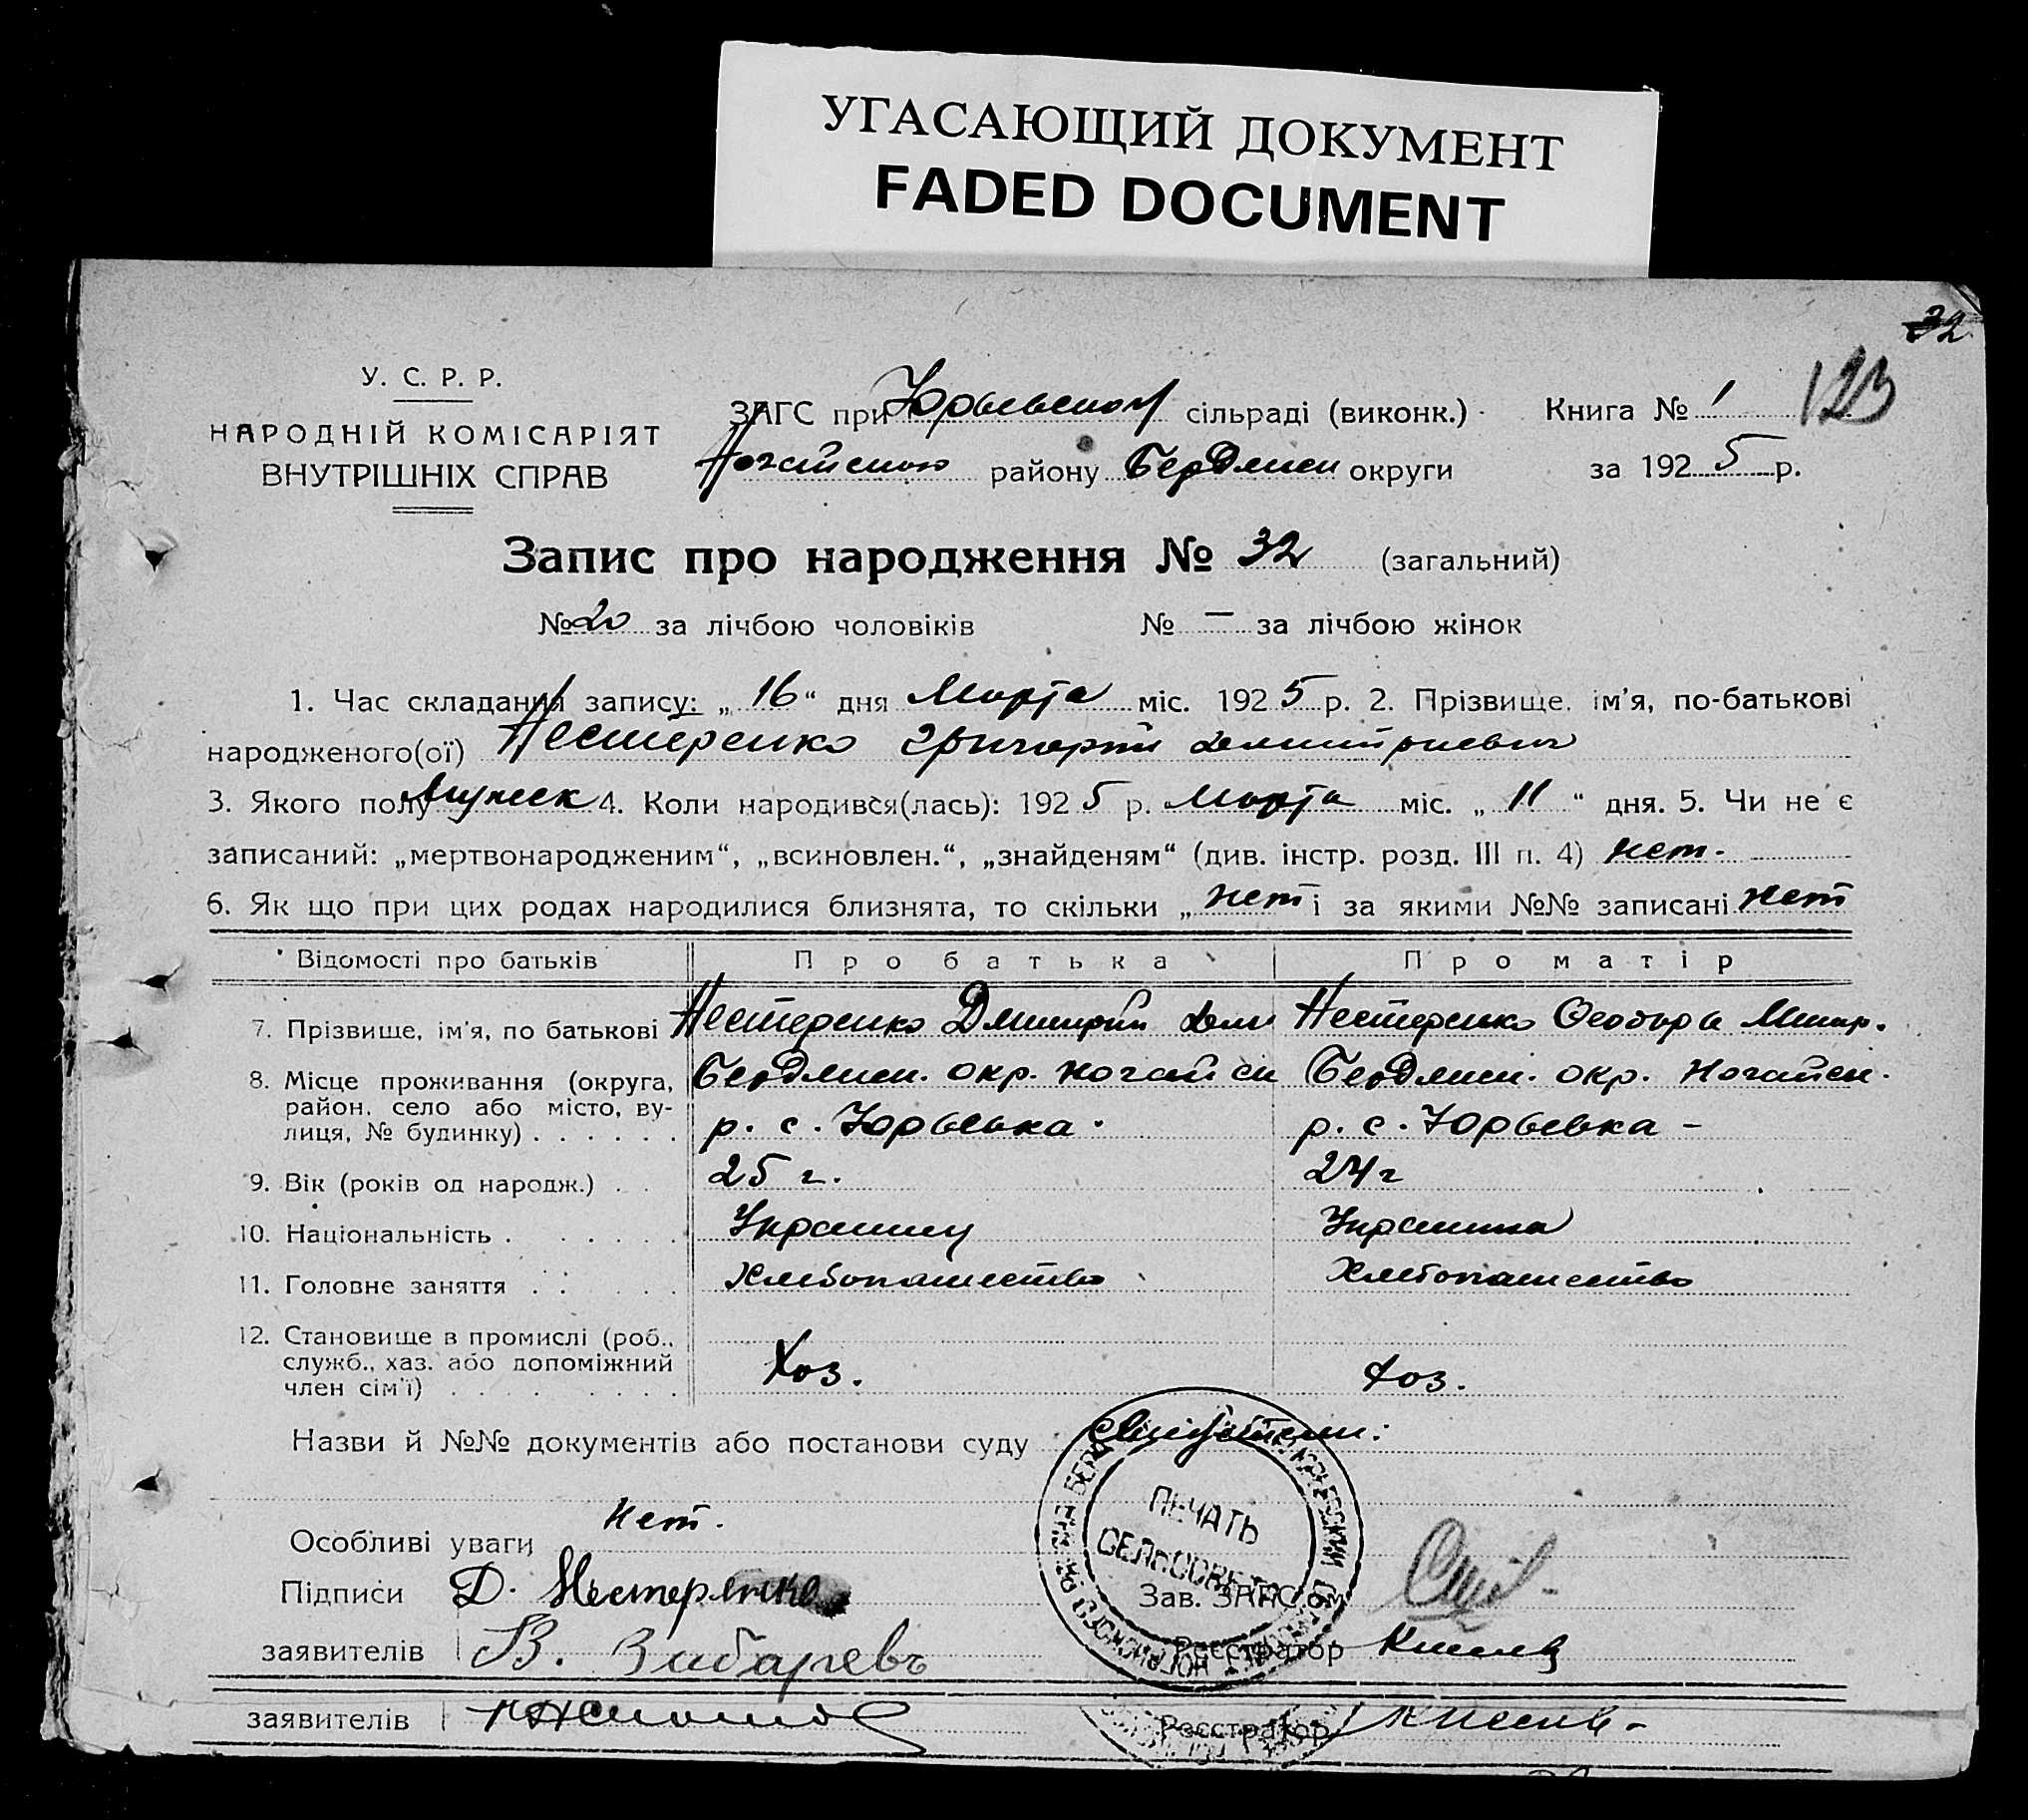 УГАСАЮЩИЙ ДОКУМЕНТ
FADED DOCUMENT
32
123
У. С. Р. Р.
НАРОДНІЙ КОМІСАРІЯТ
ВНУТРІШНІХ СПРАВ
ЗАГС при Юрьевском сільраді (виконк.) Книга № 1
району Бердянск округи за 1925 р.
Запис про народження № 32 (загальний)
№ 20 за лічбою чоловіків № — за лічбою жінок
1. Час складання запису: „16“ дня Марта міс. 1925 р. 2. Прізвище, ім'я, по-батькові
народженого(ої) Нестеренко Григорий Дмитриевич
3. Якого полу Мужск 4. Коли народився(лась): 1925 р. Марта міс. „11“ дня. 5. Чи не є
записаний: „мертвонародженим“, „всиновлен.“, „знайденям“ (див. інстр. розд. III п. 4) нет.
6. Як що при цих родах народилися близнята, то скільки „ нет і за якими №№ записані нет
Відомості про батьків Про батька Про матір
7. Прізвище, ім'я, по батькові Нестеренко Дмитрий Дем Нестеренко Феодора
8. Місце проживання (округа, Бердянск. окр. Ногайск Бердянск. окр. Ногайск.
район, село або місто, ву-
лиця, № будинку) . . . . . . р. с. Юрьевка. р. с. Юрьевка –
9. Вік (років од народж.) . . 25 г. 24 г
10. Національність . . . . . . Украинец Украинка
11. Головне заняття . . . . . Хлебопашество Хлебопашество
12. Становище в промислі (роб.,
служб., хаз. або допоміжний Хоз. Хоз.
член сім'ї) . . . . . . . .
Назви й №№ документів або постанови суду
ПЕЧАТЬ
СЕЛЬСОВЕТА
Особливі уваги нет.
Підписи Д. Нестеренко Зав. ЗАГС'ом
заявителів В. Реєстратор
заявителів Реєстратор